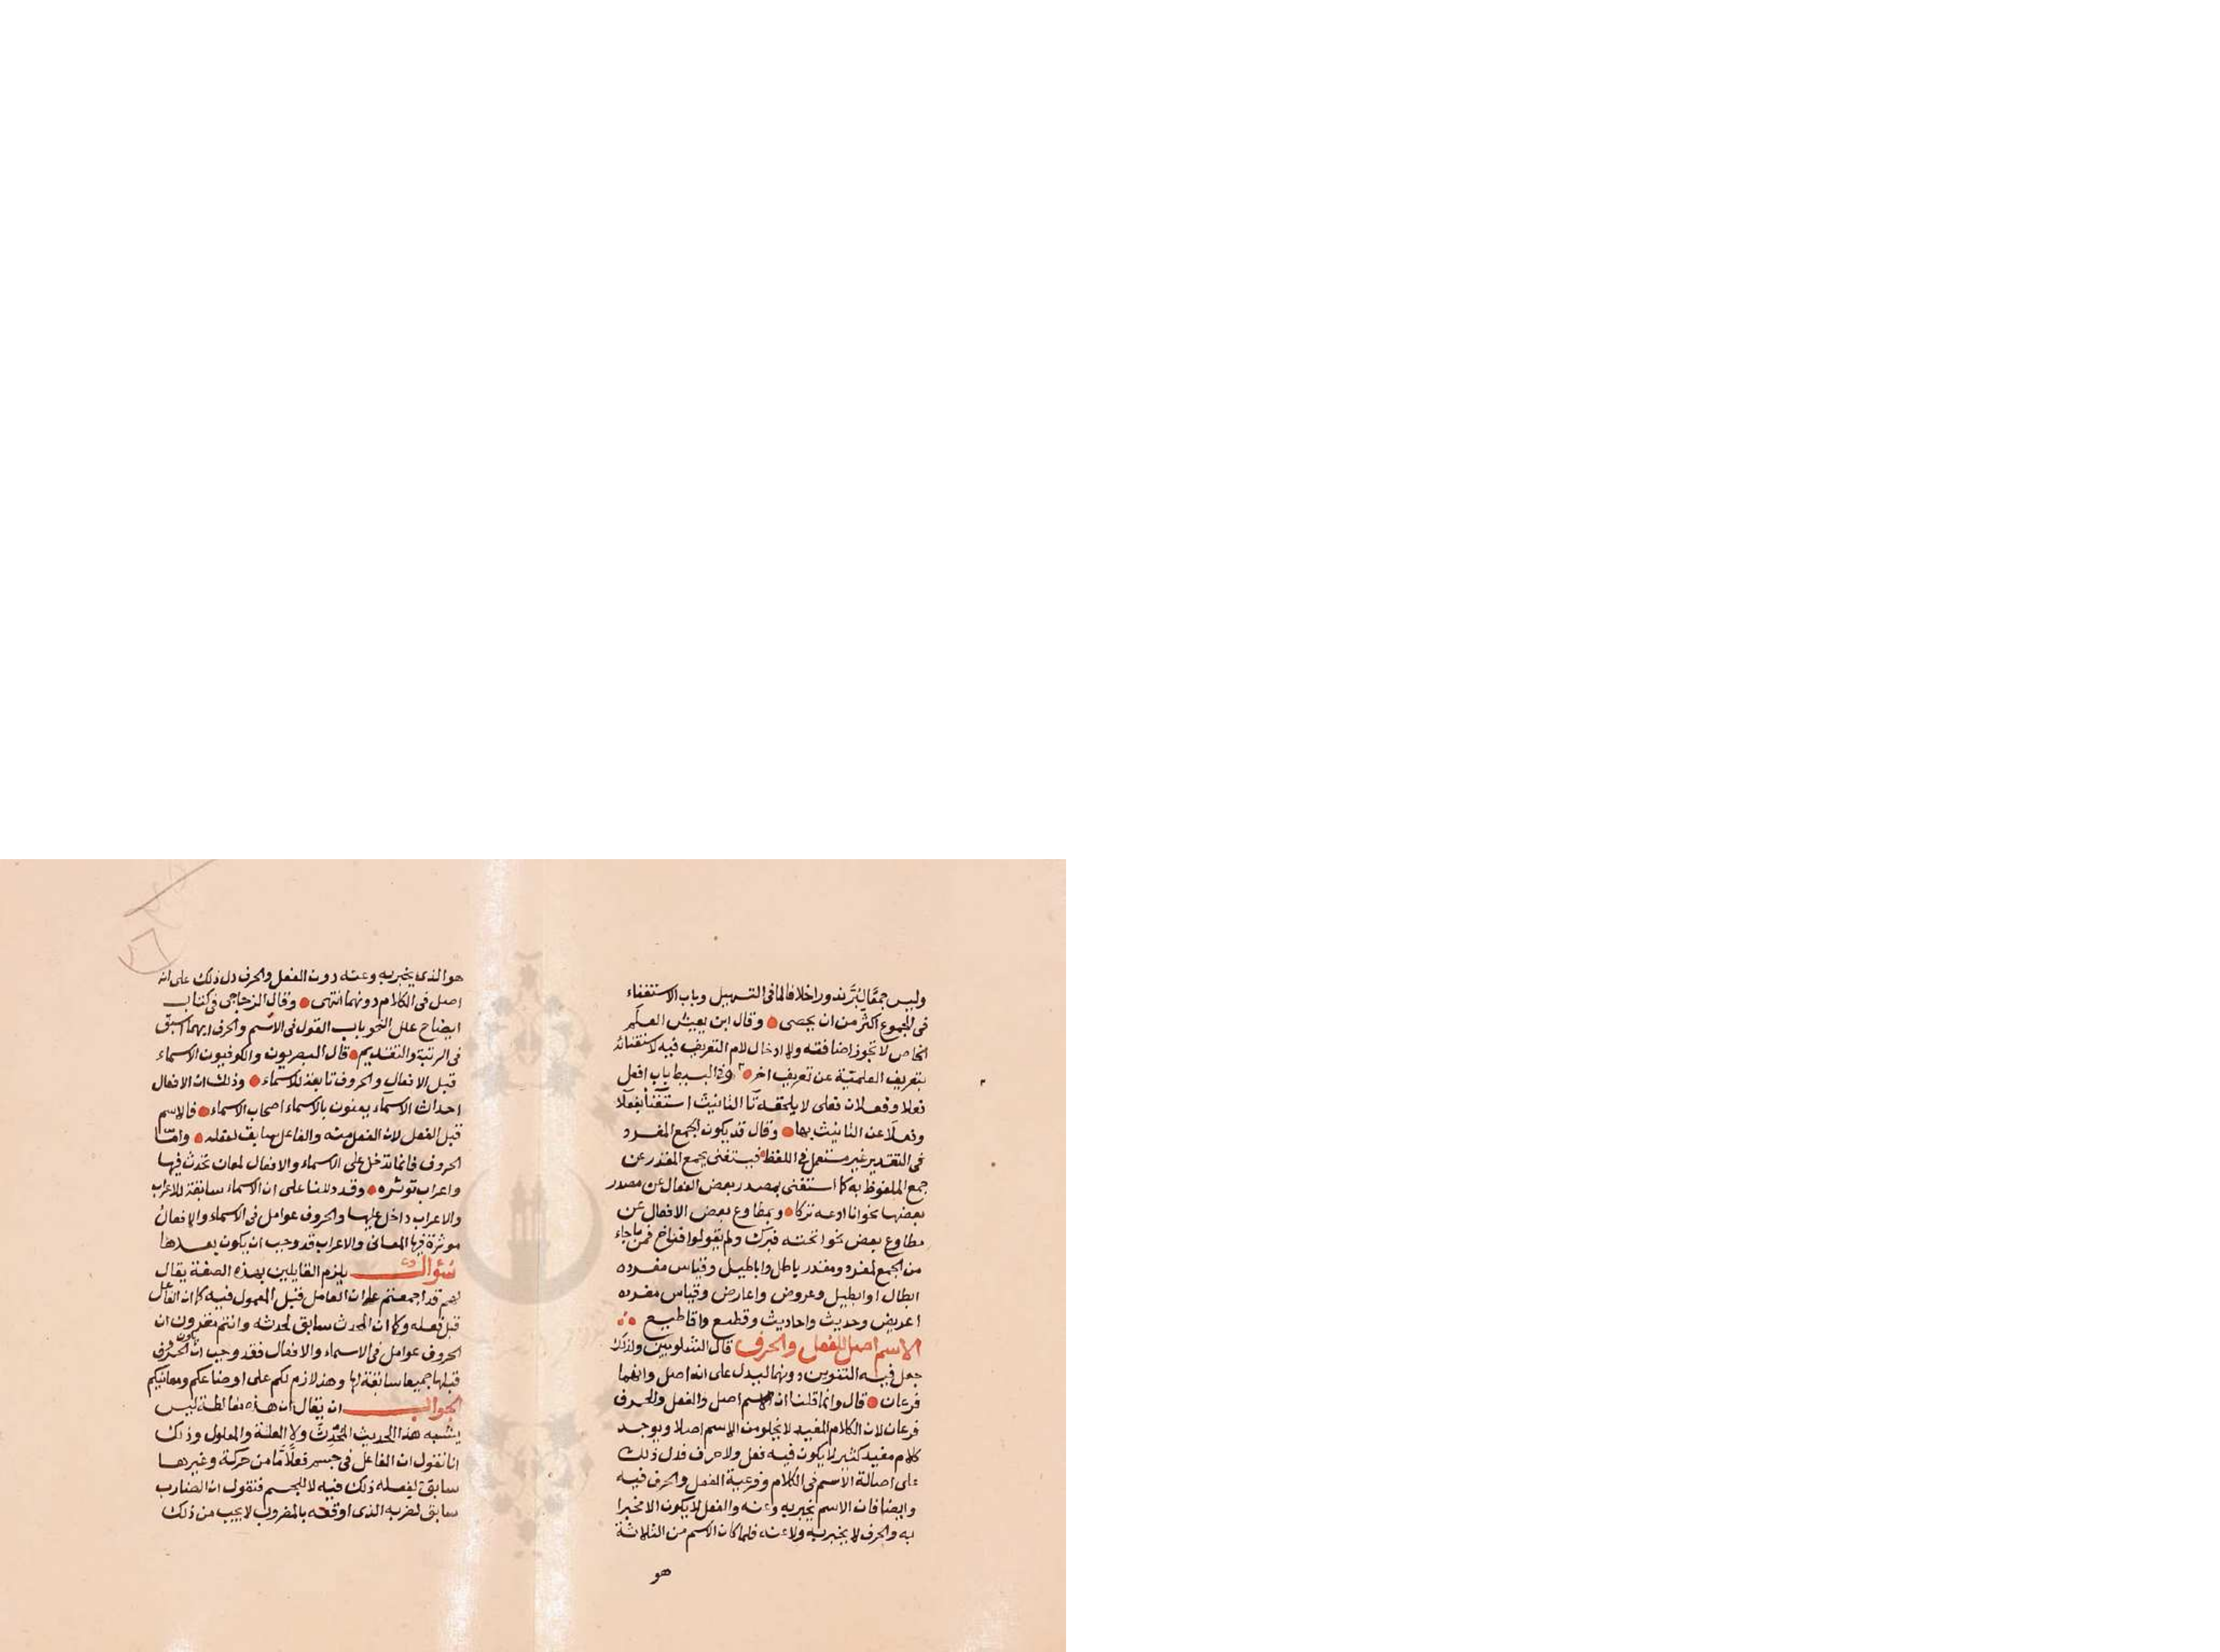 وليس جمعًا لبُرَّيند وراخلافالما فى التسهيل وباب الاستغناء
فى الجموع اكثر من ان يحصى وقال ابن يعيش العلم
الخاص لا تجوز اضافته ولا ادخال لام التعريف فيه لاستغنائه
بتعريف العلميّة عن تعريف اخر وفى البسيط باب افعل
فعلا وفعلان فعلى لا يلحقه تآ التانيث استغنآ بفعلآ
وفعلا عن التانيث بها وقال قد يكون الجمع المفرد
فى التقدير غير مستعمل فى اللفظ فيستغنى بجمع المقدر عن
جمع الملفوظ به كما استغنى بمصدر بعض الفعال عن مصدر
بعضها نحو انا ادعه تركا وبمطاوع بعض الافعال عن
مطاوع بعض نحو انخته فبرك ولم يقولوا فناخ فمن ما جاء
من الجمع لمفرد ومقدر باطل واباطيل وقياس مفرده
ابطال او ابطيل وعروض واعارض وقياس مفرده
اعريض وحديث واحاديث وقطيع واقاطيع
الاسم اصل للفعل والحرف قال الشلوبين ولذلك
جعل فيه التنوين دونهما ليدل على انه اصل وانهما
فرعان قال وانما قلنا ان الاسم اصل والفعل والحرف
فرعان لان الكلام المفيد لا يخلو من الاسم اصلا ويوجد
كلام مفيد كثير لا يكون فيه فعل ولا حرف فدل ذلك
على اصالة الاسم فى الكلام وفرعية الفعل والحرف فيه
وايضا فان الاسم يخبر به وعنه والفعل لا يكون الا مخبرا
به والحرف لا يخبر به ولا عنه فلما كان الاسم من الثلاثة
هو
هو الذى يخبر به وعنه دون الفعل والحرف دل ذلك على انه
اصل فى الكلام دونهما انتهى وقال الزجاجى فى كتاب
ايضاح علل النحو باب القول فى الاسم والحرف ايهما اسبق
فى الرتبة والتقديم قال البصريون والكوفيون الاسماء
قبل الافعال والحروف تابعة للاسماء وذلك ان الافعال
احداث الاسماء يعنون بالاسماء اصحاب الاسماء فالاسم
قبل الفعل لان الفعل منه والفاعل سابق لفعله وامّا
الحروف فانما تدخل على الاسماء والافعال لمعان تحدث فيها
واعراب توثره وقد دللنا على ان الاسماء سابقة للاعراب
والاعراب داخل عليها والحروف عوامل فى الاسماء والافعال
موثرة فيها المعانى والاعراب قد وجب ان يكون بعدها
سؤال يلزم القايلين بهذه الصفة يقال
لهم قد اجمعتم على ان العامل قبل المعمول فيه كما ان الفاعل
قبل فعله وكما ان المحدث سابق لحدثه وانتم تقرون ان
الحروف عوامل فى الاسماء والافعال فقد وجب ان تكون الحروف
قبلها جميعا سابقة لها وهذا لازم لكم على اوضاعكم ومعانيكم
الجواب ان يقال ان هذه مغالطة ليس
يشبه هذا الحديث المُحْدِثَ ولا العلة والمعلول وذلك
انا نقول ان الفاعل فى جسم فعلًا مّا من حركة وغيرها
سابق لفعله ذلك فيه لا للجسم فنقول ان الضارب
سابق لضربه الذى اوقعه بالمضروب لا يجب من ذلك